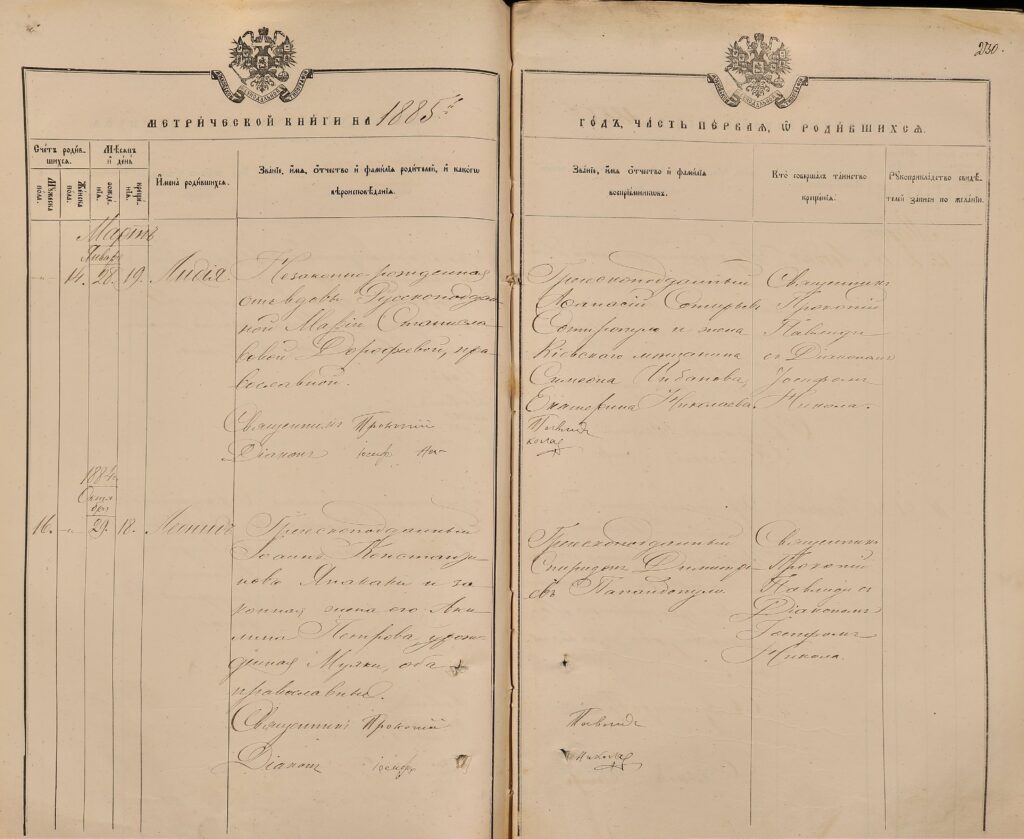 230.
МЕТРИ́ЧЕСКОЙ КНИ́ГИ НА 1885й
ГО́ДЪ, ЧА́СТЬ ПЕ́РВАЯ, Ѿ РОДИ́ВШИХСЯ.
Сче́тъ роди́вшихся.
Мѣ́сяцъ и҆ де́нь
Мꙋжеска полъ.
Же́нска полъ.
рожденія.
крещенія.
И҆мена̀ роди́вшихся.
Зва́нїе, и҆́мѧ, ѻ҆́тчество и҆ фамı́лїѧ роди́телей, и҆ како́гѡ
вѣроисповѣ́данїѧ.
Зва́нїе, и҆́мѧ, ѻ҆́тчество и҆ фамı́лїѧ
воспрїе́мникѡвъ.
Кто̀ соверша́лъ та́инство
креще́нїѧ.
Рꙋкоприкла́дство свидѣ́-
телей за́писи по жела́нїю.
Мартъ
Января
14. 28. 19. Лидія
Незаконно-рожденная
отъ вдовы Русскоподдан-
ной Маріи Станисла-
вовой Дорофеевой, пра-
вославной.
Священникъ Прокопій
Діаконъ Іосифъ Ни-
Грекоподданный
Аѳанасій Сотирьевъ
Сотиропуло и жена
Кіевскаго мѣщанина
Симеона Чибанова,
Екатерина Николаева.
Павлиди
колая
Священникъ
Прокопій
Павлиди
съ Діакономъ
Іосифомъ
Никола.
1884.
Октя-
бря
16. 29. 18. Леонидъ
Грекоподданный
Іоаннъ Константи-
новъ и за-
конная жена его
Петрова, урож-
денная оба
православные.
Священникъ Прокопій
Діаконъ Іосифъ
Грекоподданный
Спиридонъ Димитрі-
евъ Пападопуло.
Павлиди
Николая
Священникъ
Прокопій
Павлиди съ
Діакономъ
Іосифомъ
Никола.